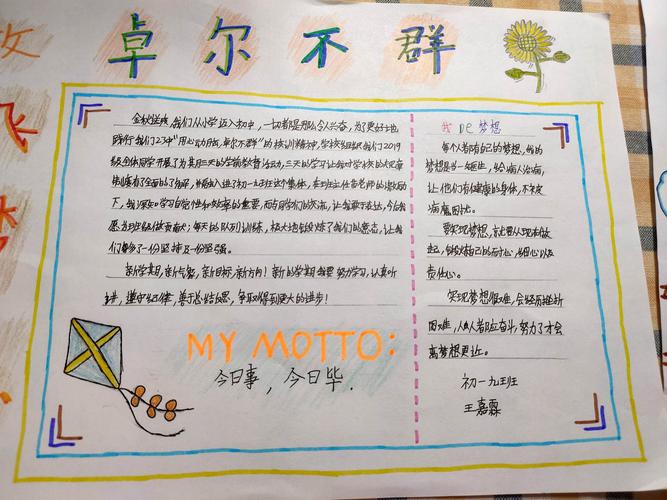 卓尔不群
放
飞
梦
金秋送爽,我们从小学迈入初中,一切都是那么令人兴奋,为了更好地
践行我们27中"用心动力成,卓尔不群"的校训精神,学校组织我们2019
级全体同学开展了为期三天的学前教育活动,三天的学习让我对学校的
有了全面的了解,并融入进了初一九班这个集体,在班主任老师的
下,我深知学习自觉性和效率的重要,同学们的,让我敢于表达,今后我
愿为班级做贡献;每天的队列训练,极大地锻炼了我们的意志,让我
们多了一份坚持及一份坚强。
新学期,新气象,新目标,新方向!新的学期我要努力学习,认真听
讲,遵守纪律,善于总结反思,争取得到更大的进步!
MY MOTTO:
今日事,今日毕.
我De梦想
每个人都有自己的梦想,我的
梦想是当一名医生,给病人治病,
让他们有健康的身体,不被
病魔困扰。
要实现梦想,就要从现在做
起,锻炼自己的耐心,细心以及
责任心。
实现梦想很难,会经历挫折
困难,人人都应奋斗,努力了才会
离梦想更近。
初一九班
王嘉霖